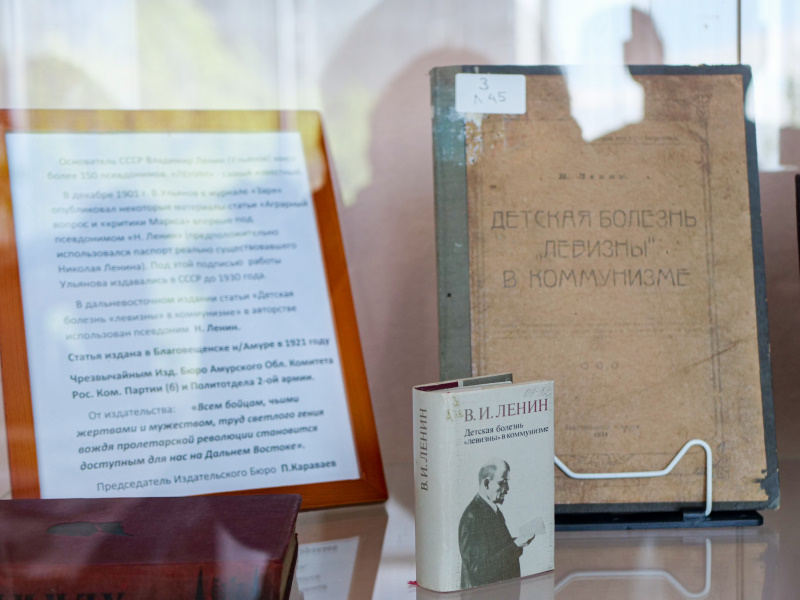 Основатель СССР Владимир Ленин (Ульянов) имел
более 150 псевдонимов.
В декабре 1901 г. В.Ульянов в журнале «Заря»
опубликовал некоторые материалы статьи «Аграрный
вопрос и «критики Маркса» впервые под
псевдонимом «Н. Ленин» (предположительно
использовался паспорт реально существовавшего
Николая Ленина). Под этой подписью работы
Ульянова издавались в СССР до 1930 года.
В дальневосточном издании статьи «Детская
болезнь «левизны» в коммунизме» в авторстве
использован псевдоним Н. Ленин.
Статья издана в Благовещенске н/Амуре в 1921 году
Чрезвычайным Изд. Бюро Амурского Обл. Комитета
Рос. Ком. Партии (б) и Политотдела 2-ой армии.
От издательства: «Всем бойцам, чьими
жертвами и мужеством, труд светлого гения
вождя пролетарской революции становится
доступным для нас на Дальнем Востоке».
Председатель Издательского Бюро П.Караваев
З
Л 45
Н. Ленин.
ДЕТСКАЯ БОЛЕЗНЬ
„ЛЕВИЗНЫ"
В КОММУНИЗМЕ
В. И. ЛЕНИН
В. И. ЛЕНИН
Детская болезнь
«левизны» в коммунизме